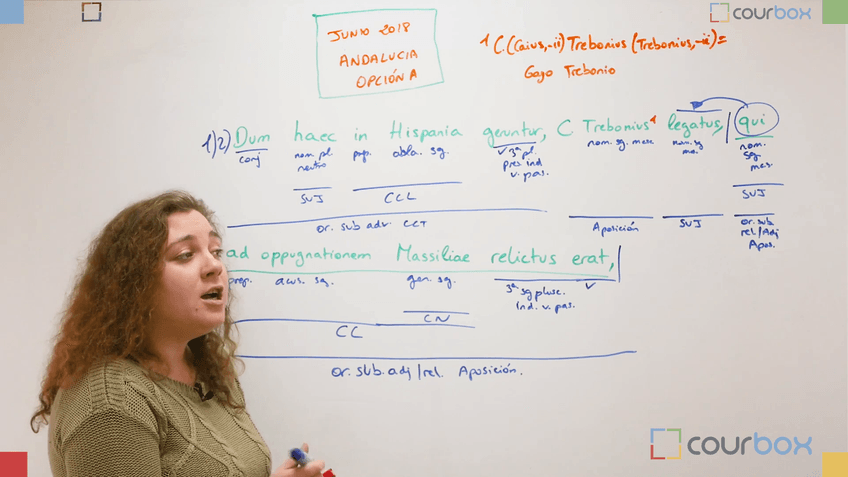 courbox
JUNIO 2018
ANDALUCIA
OPCIÓN A
1 C. (Caius, -ii) Trebonius (Trebonius, -ii) =
Gayo Trebonio
1) 2) Dum haec in Hispania geruntur, C Trebonius 1 legatus, | qui
conj nom. pl neutro prep. abla. sg. v 3ª pl pres ind v. pas. nom. sg. masc nom. sg mas. nom. sg. mas.
SUJ CCL SUJ
or. sub adv. CCT Aposición SUJ or. sub rel/Adj Apos.
ad oppugnationem Massiliae relictus erat, |
prep. acus. sg. gen. sg. 3ª sg plusc. ind. v. pas. v
CN
CC
or. sub. adj/rel. Aposición.
courbox